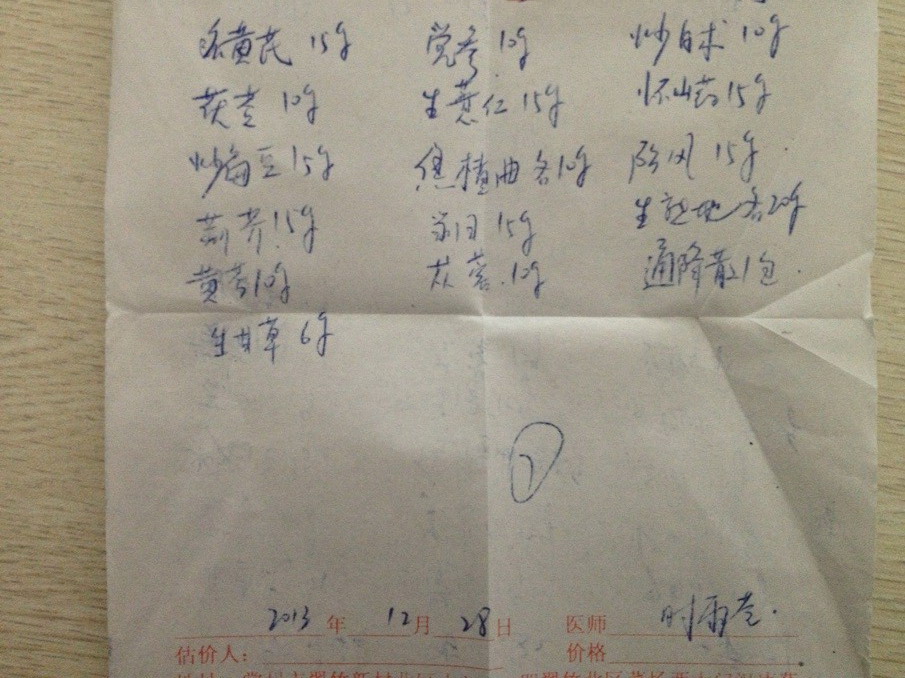 炙黄芪 15g 党参 10g 炒白术 10g
茯苓 10g 生薏仁 15g 怀山药 15g
炒扁豆 15g 焦楂曲各10g 防风 15g
荆芥 15g 当归 15g 生熟地各20g
黄芩 10g 苁蓉 10g 通降散1包
生甘草 6g
7
2013年12月28日 医师 时雨苍
估价人: 价格